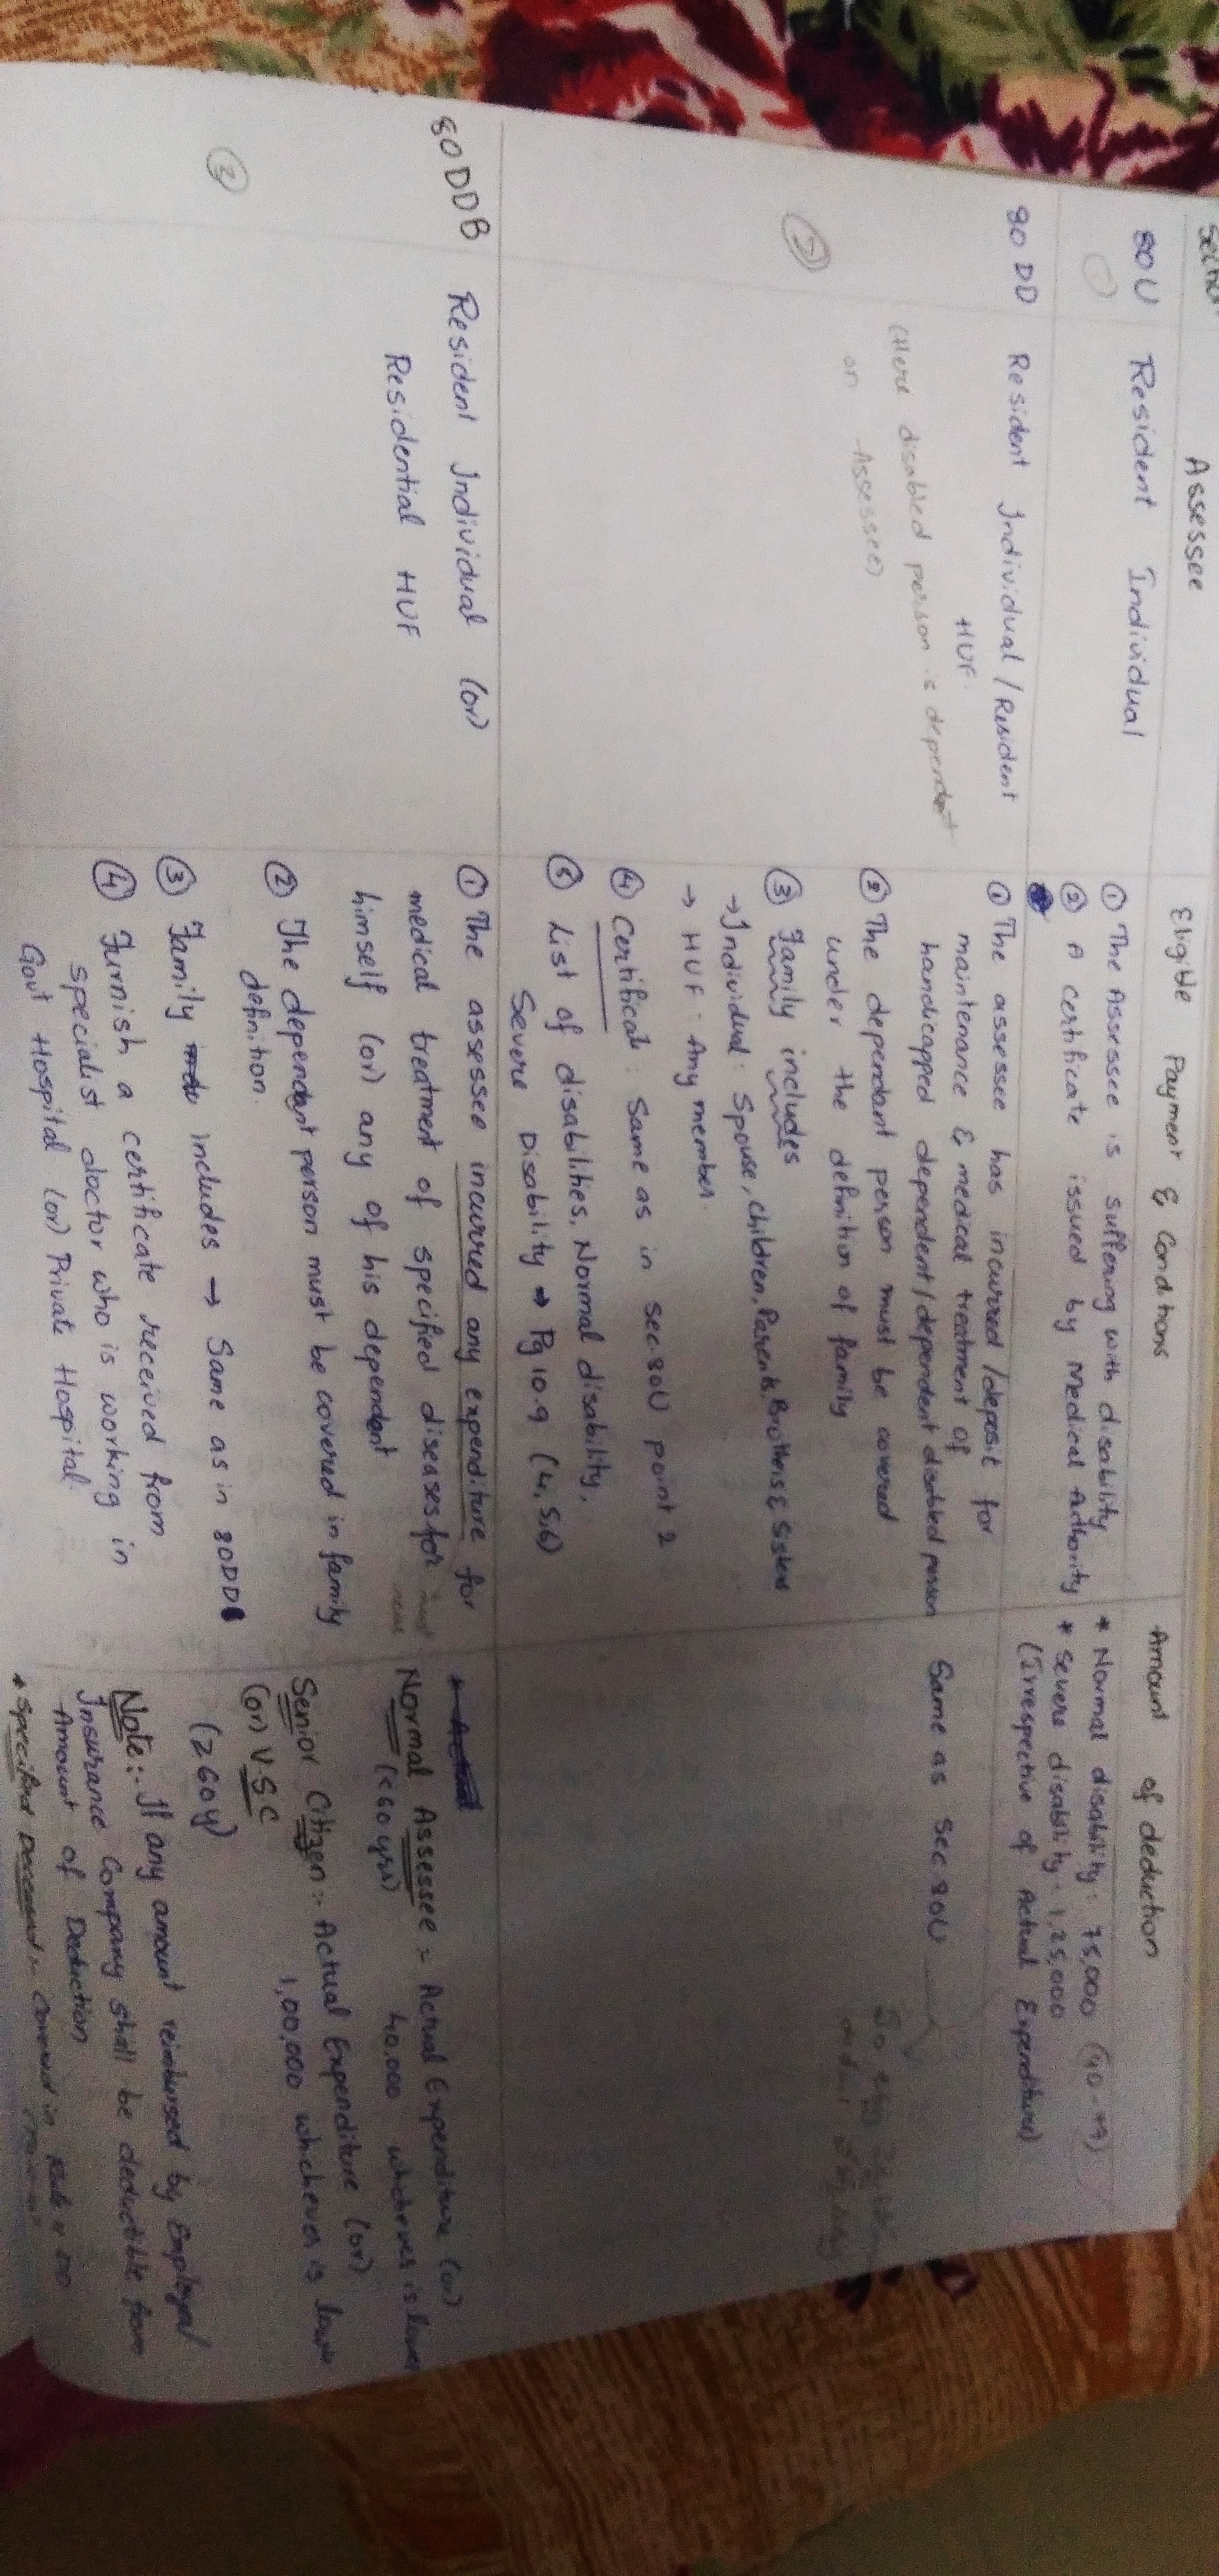 Section Assessee Eligible Payment & Conditions Amount of deduction
80U Resident Individual
①
① The Assessee is suffering with disability
② A certificate issued by Medical Authority
* Normal disability: 75,000 (40-79)
* Severe disability: 1,25,000
(Irrespective of Actual Expenditure)
80 DD Resident Individual / Resident
HUF.
(Here disabled person is dependent
on Assessee)
②
① The assessee has incurred / deposit for
maintenance & medical treatment of
handicapped dependent / dependent disabled person
② The dependant person must be covered
under the definition of family
③ Family includes
→ Individual: Spouse, Children, Parents, Brothers & Sisters
→ HUF: Any member.
④ Certificate: Same as in sec.80U point 2
⑤ List of disabilities, Normal disability,
Severe Disability → Pg 10.9 (4,5,6)
Same as sec 80U
80DDB Resident Individual (or)
Residential HUF
③
① The assessee incurred any expenditure for
medical treatment of specified diseases for
himself (or) any of his dependent
② The dependent person must be covered in family
definition.
③ Family includes → Same as in 80DD
④ Furnish a certificate received from
specialist doctor who is working in
Govt Hospital (or) Private Hospital.
Normal Assessee = Actual Expenditure (or)
(<60 yrs) 40,000 whichever is lower
Senior Citizen:- Actual Expenditure (or)
(or) V.S.C 1,00,000 whichever is lower
(≥60y)
Note:- If any amount reimbursed by Employer
Insurance Company shall be deductible from
Amount of Deduction
* Specified covered in